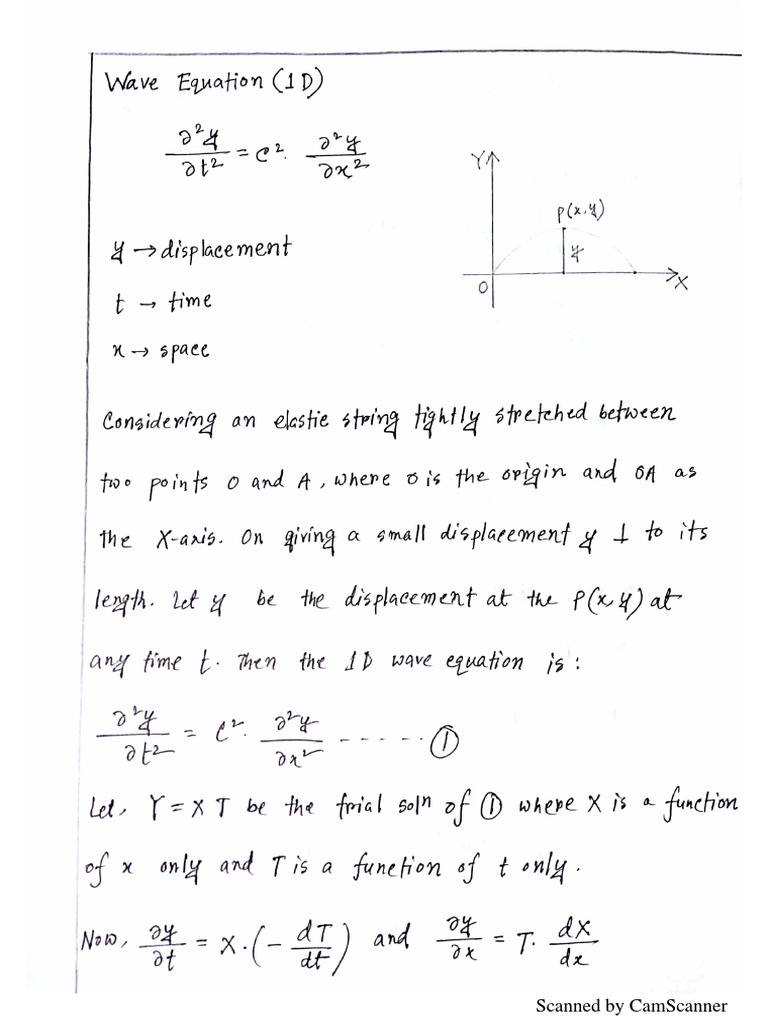 Wave Equation (1D)
∂²y/∂t² = c². ∂²y/∂x²
Y
P(x,y)
y
O
X
y → displacement
t → time
x → space
Considering an elastic string tightly stretched between
two points O and A, where O is the origin and OA as
the X-axis. On giving a small displacement y ⊥ to its
length. Let y be the displacement at the P(x,y) at
any time t. Then the 1D wave equation is:
∂²y/∂t² = c². ∂²y/∂x² ------ ①
Let, Y = X T be the trial soln of ① where X is a function
of x only and T is a function of t only.
Now, ∂y/∂t = X.(- dT/dt) and ∂y/∂x = T. dX/dx
Scanned by CamScanner